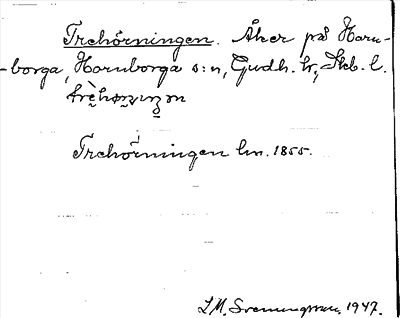 Trehörningen. Åker på Horn-
-borga, Hornborga s:n, Gudh. hr, Skb. l.
Trehörningen hm. 1855.
S.M. Svenungsson. 1947.